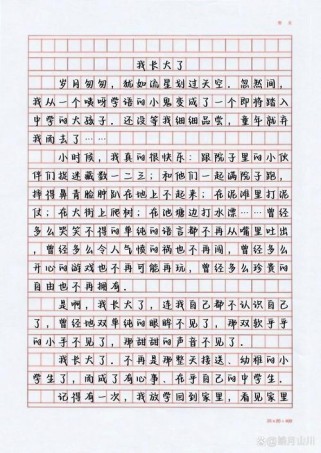 我长大了
岁月匆匆，就如流星划过天空．忽然间，
我从一个咿呀学语的小鬼变成了一个即将踏入
中学的大孩子．还没等我细细品尝，童年就弃
我而去了……
小时候，我真的很快乐：跟院子里的小伙
伴们捉迷藏数一二三；和他们一起满院子跑，
摔得鼻青脸肿趴在地上不起来；在泥滩里打泥
仗；在大街上爬树；在池塘边打水漂……曾经
多么哭笑不得的单纯的语言都不再从嘴里吐出
，曾经多么令人气愤的祸也不再闯，曾经多么
开心的游戏也不再可能再玩，曾经多么珍贵的
自由也不再拥有．
是啊，我长大了，连我自己都不认识自己
了，曾经地双单纯的眼眸不见了，那双软乎乎
的小手不见了，那甜甜的声音不见了．
我长大了．不再是那整天接送、幼稚的小
学生了，而成了有心事、在乎自己的中学生．
记得有一次，我放学回到家里，看见家里